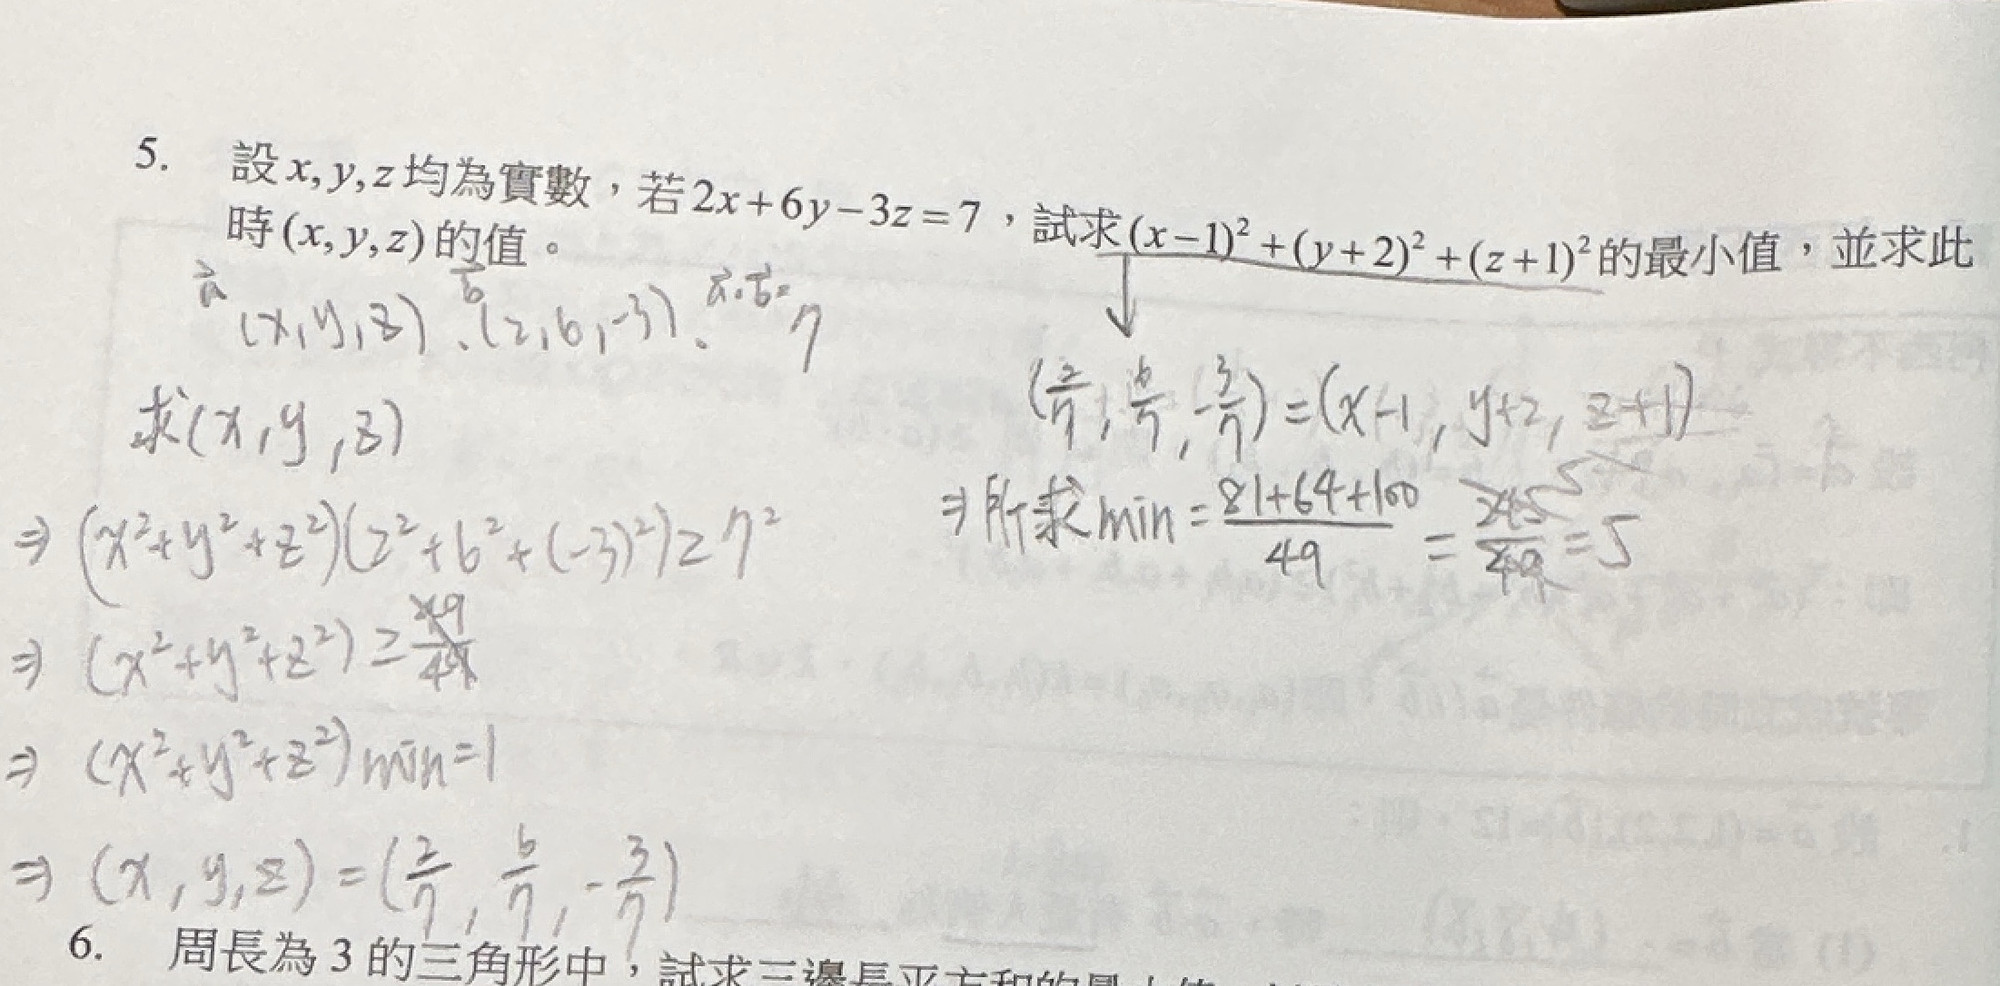 5. 設 x, y, z 均為實數，若 2x+6y−3z=7，試求 (x−1)²+(y+2)²+(z+1)² 的最小值，並求此
時 (x, y, z) 的值。
a⃗ (x,y,z) · b⃗ (2,6,-3). a⃗·b⃗= 7
求(x,y,z)
⇒ (x²+y²+z²)(2²+6²+(-3)²)≥7²
⇒ (x²+y²+z²) ≥ 49/49
⇒ (x²+y²+z²) min=1
⇒ (x,y,z)=(2/7, 6/7, -3/7)
↓
(2/7, 6/7, -3/7)=(x-1, y+2, z+1)
⇒所求min = (81+64+100)/49 = 245/49 = 5
6. 周長為 3 的三角形中，試求三邊長平方和的最小值